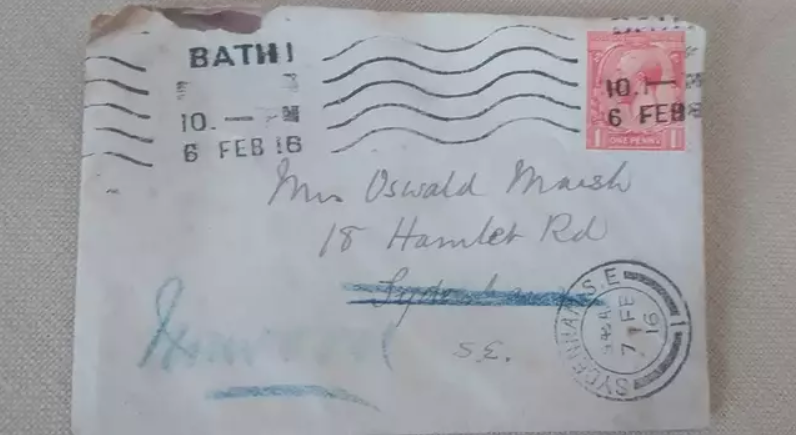 BATH
10. —
6 FEB 16
10. —
6 FEB
ONE PENNY
Mrs Oswald Marsh
18 Hamlet Rd
Sydenham
S.E.
SYDENHAM S.E
7 FE
16